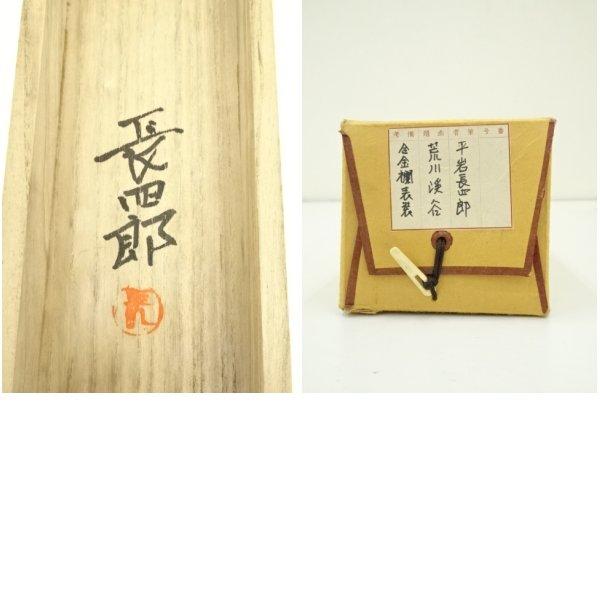 長四郎
番号 筆者 画題 備考
平岩長四郎
荒川渓谷
金襴表装